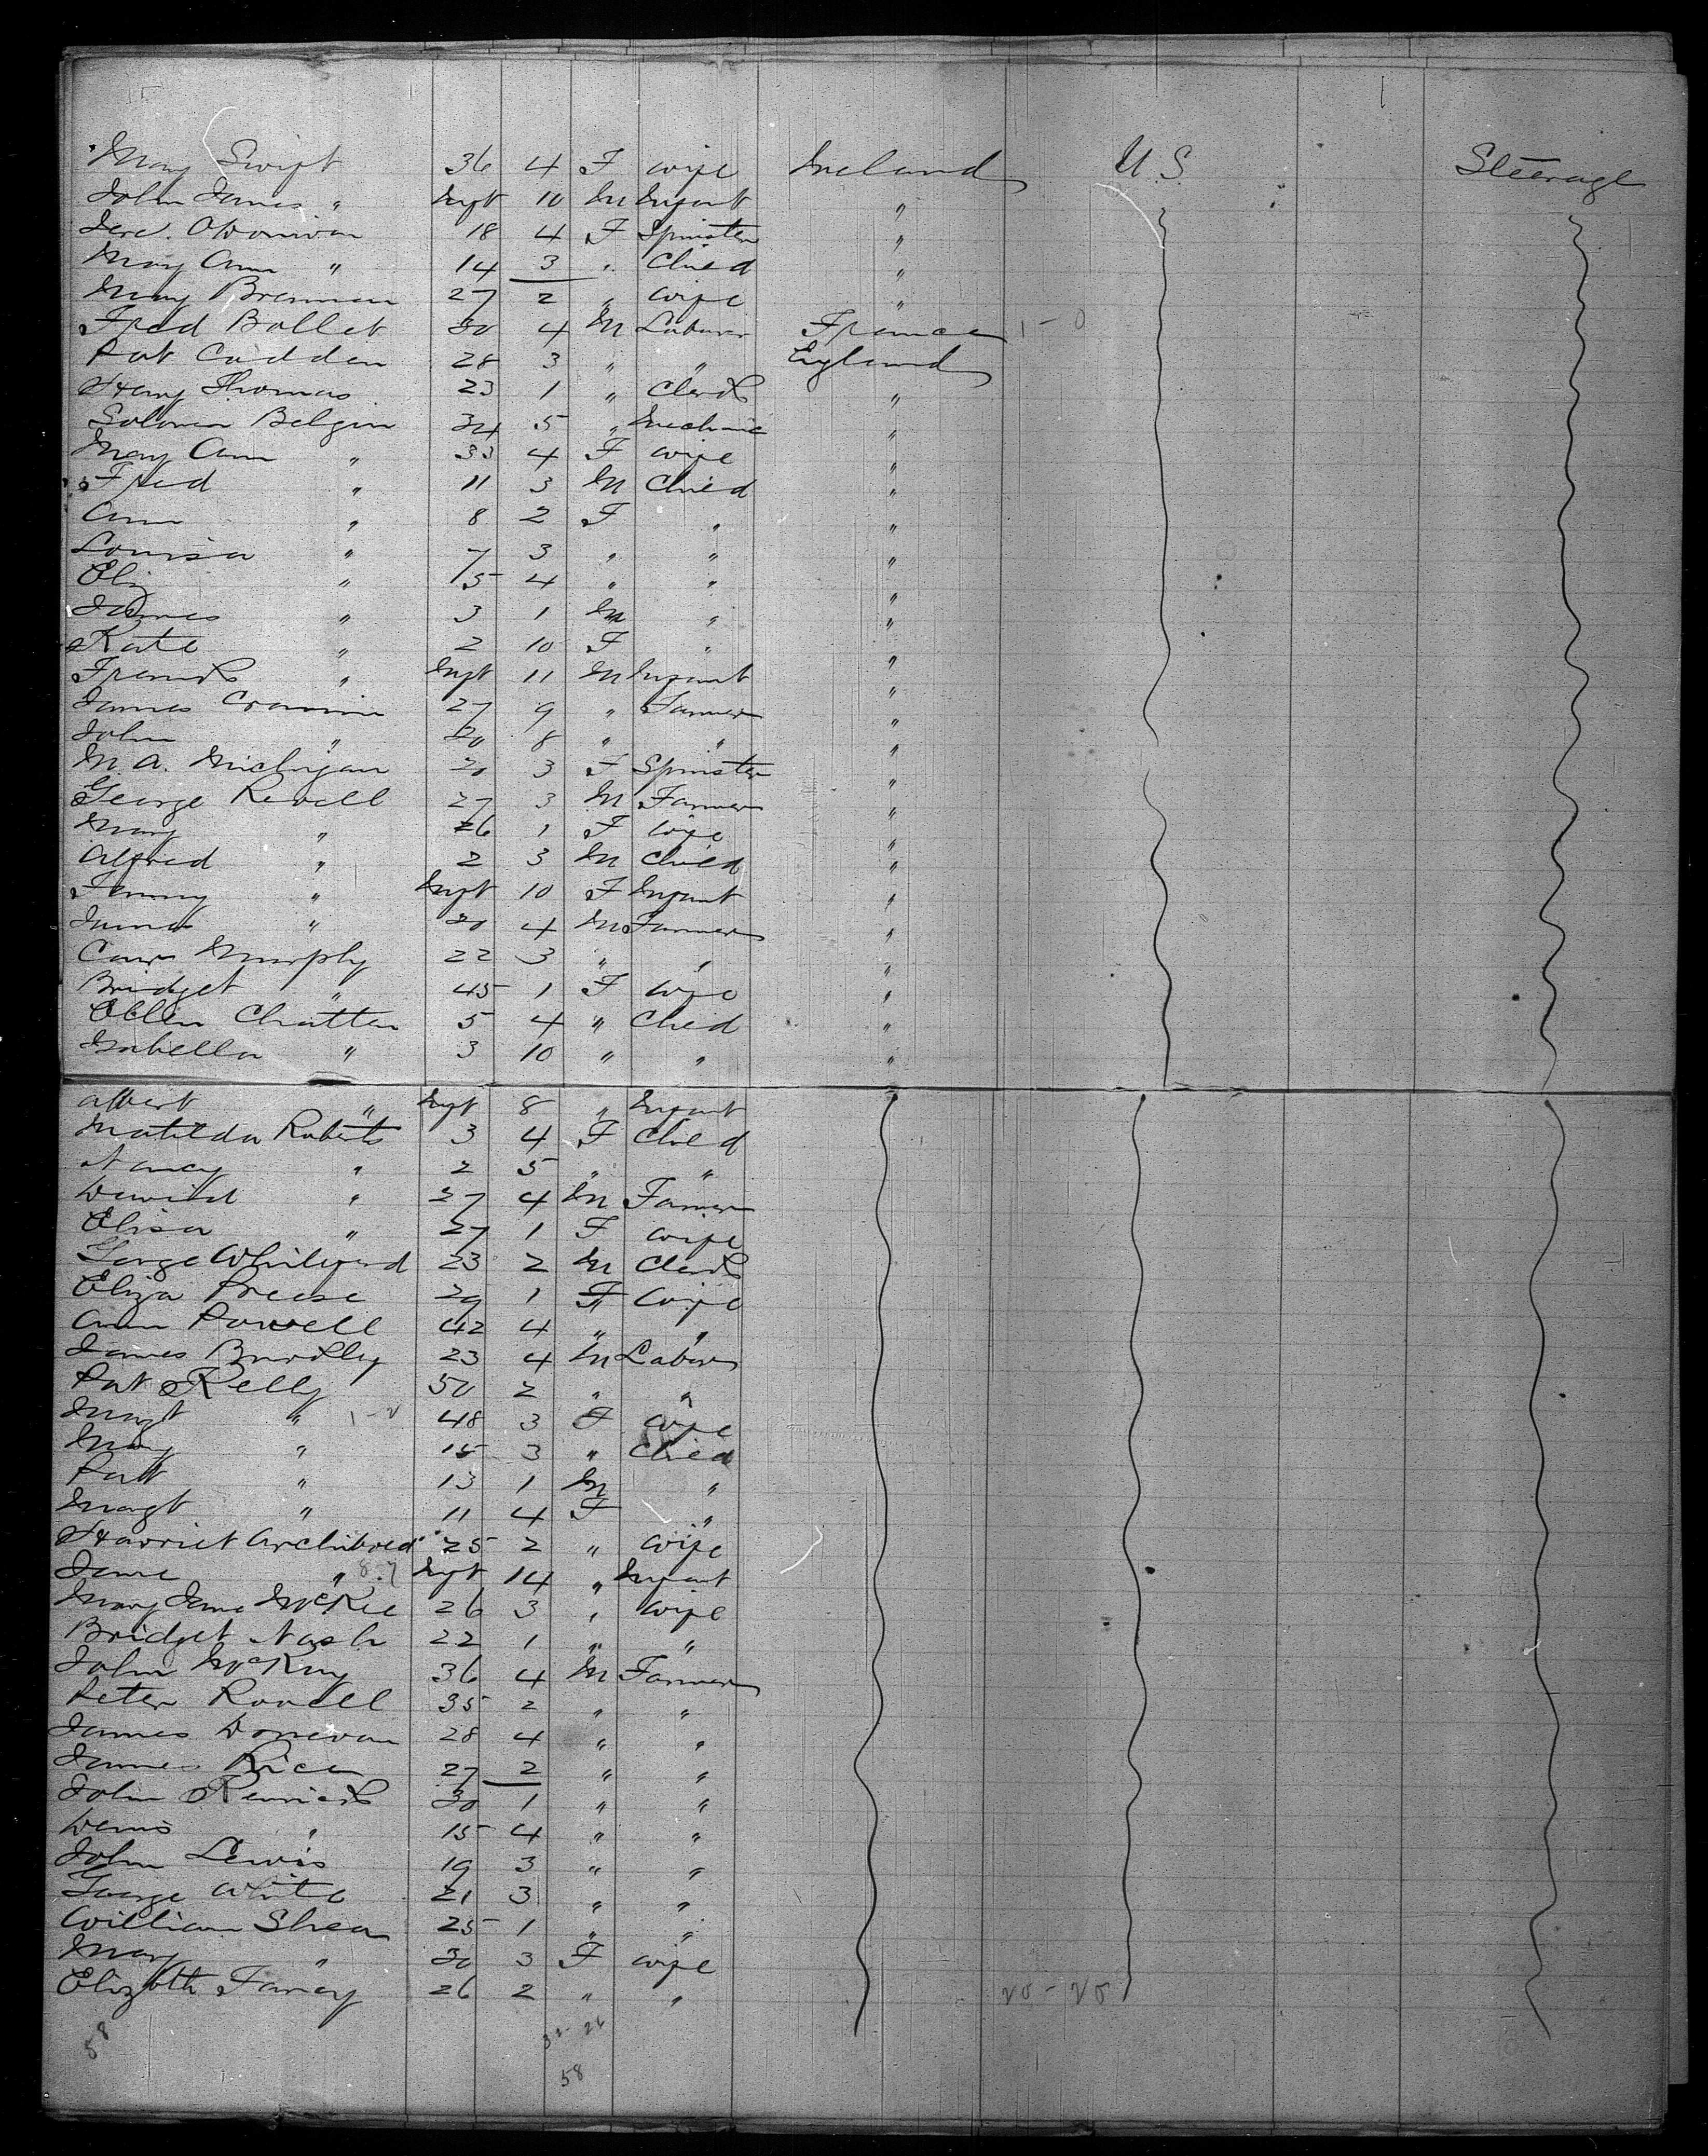 Mary Swift 36 4 F wife Ireland U.S. Steerage
John James " Inft 10 M Infant "
Jere. Odonivan 18 4 F Spinster "
Mary Ann " 14 3 " Child "
Mary Brennan 27 2 " wife "
Fred Bollet 30 4 M Laborer France 1-0
Pat Cadden 28 3 " " England
Henry Thomas 23 1 " Clerk "
Solomon Belgin 34 5 " Mechanic "
Mary Ann " 33 4 F wife "
Fred " 11 3 M Child "
Ann " 8 2 F " "
Louisa " 7 3 " " "
Eliz " 5 4 " " "
James " 3 1 M " "
Kate " 2 10 F " "
Frank " Inft 11 M Infant "
James Cronnin 27 9 " Farmer "
John " 20 8 " " "
M. A. Michigan 20 3 F Spinster "
George Revell 27 3 M Farmer "
Mary " 26 1 F wife "
Alfred " 2 3 M Child "
Fanny " Inft 10 F Infant "
James " 20 4 M Farmer "
Murphy 22 3 " " "
Bridget " 45 1 F wife "
Ellen Chatten 5 4 " Child "
Isabella " 3 10 " " "
Albert " Inft 8 " Infant
Matilda Roberts 3 4 F Child
Nancy " 2 5 " "
David " 27 4 M Farmer
Elisa " 27 1 F wife
George 23 2 M Clerk
Eliza Preese 29 1 F wife
Ann Powell 42 4 " "
James Bradley 23 4 M Laborer
Pat Kelly 50 2 " "
Magt " 48 3 F wife
Mary " 15 3 " Child
Patt " 13 1 M "
Magt " 11 4 F "
Harriet Archibald 25 2 " wife
Jane " 8.7 Inft 14 " Infant
Mary Jane McKee 26 3 " wife
Bridget Nash 22 1 " "
John McKay 36 4 M Farmer
Peter Rowell 35 2 " "
James Donevan 28 4 " "
James Rice 27 2 " "
John 30 1 " "
Denis " 15 4 " "
John Lewis 19 3 " "
George White 21 3 " "
William Shea 25 1 " "
Mary " 30 3 F wife
Elizbth Faney 26 2 " " 20-20
58 32-26
58